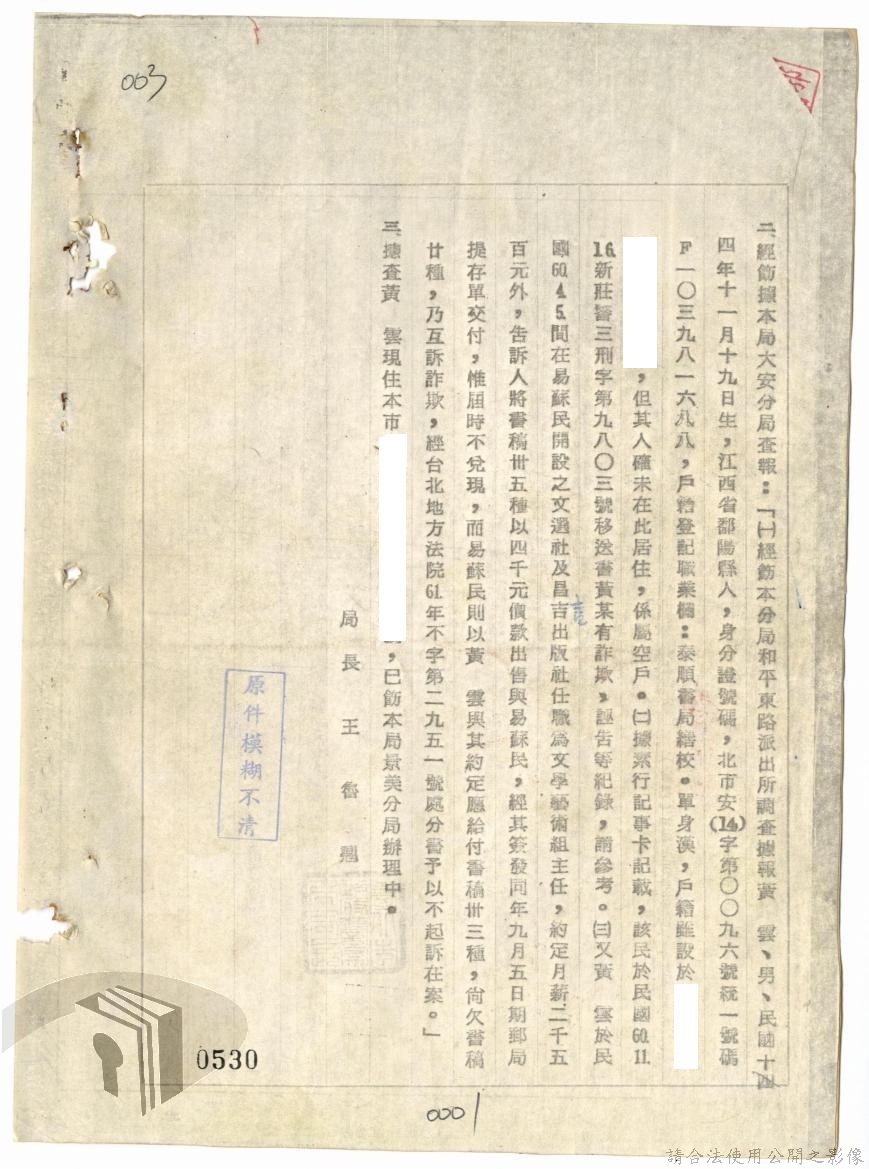 003
二、經飭據本局大安分局查報：「㈠經飭本分局和平東路派出所調查據報黃　雲、男、民國十四
四年十一月十九日生，江西省鄱陽縣人，身分證號碼，北市安(14)字第〇〇九六號統一號碼
F一〇三九八一六八八，戶籍登記職業欄：泰順書局繕校。單身漢，戶籍雖設於
，但其人確未在此居住，係屬空戶。㈡據素行記事卡記載，該民於民國60.11.
16.新莊警三刑字第九八〇三號移送書黃某有詐欺，誣告等紀錄，請參考。㈢又黃　雲於民
國60.4.5.間在易蘇民開設之文選社及昌吉出版社任職為文學藝術組主任，約定月薪二千五
百元外，告訴人將書稿卅五種以四千元價款出售與易蘇民，經其簽發同年九月五日期郵局
提存單交付，惟屆時不兌現，而易蘇民則以黃　雲與其約定應給付書稿卅三種，尚欠書稿
廿種，乃互訴詐欺，經台北地方法院61.年不字第二九五一號處分書予以不起訴在案。」
三、據查黃　雲現住本市，已飭本局景美分局辦理中。
局長　王魯翹
原件模糊不清
0530
0001
請合法使用公開之影像